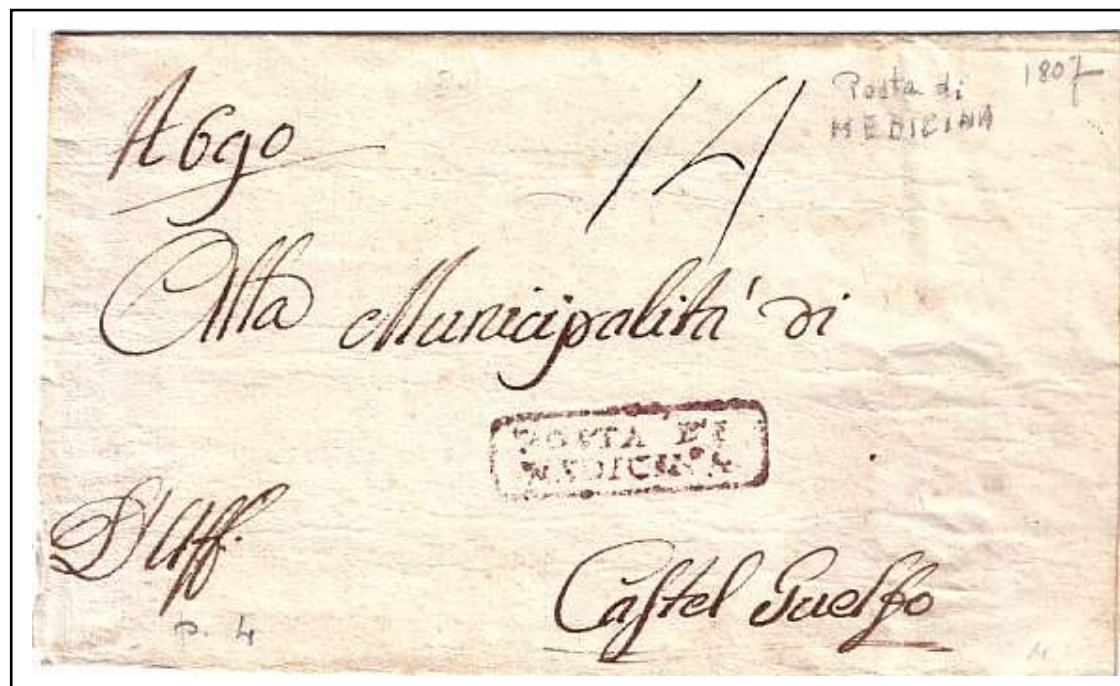 N 690
14
Posta di
MEDICINA
1807
Alla Municipalità di
POSTA DI
MEDICINA
D'Uff.
p. 4
Castel Guelfo